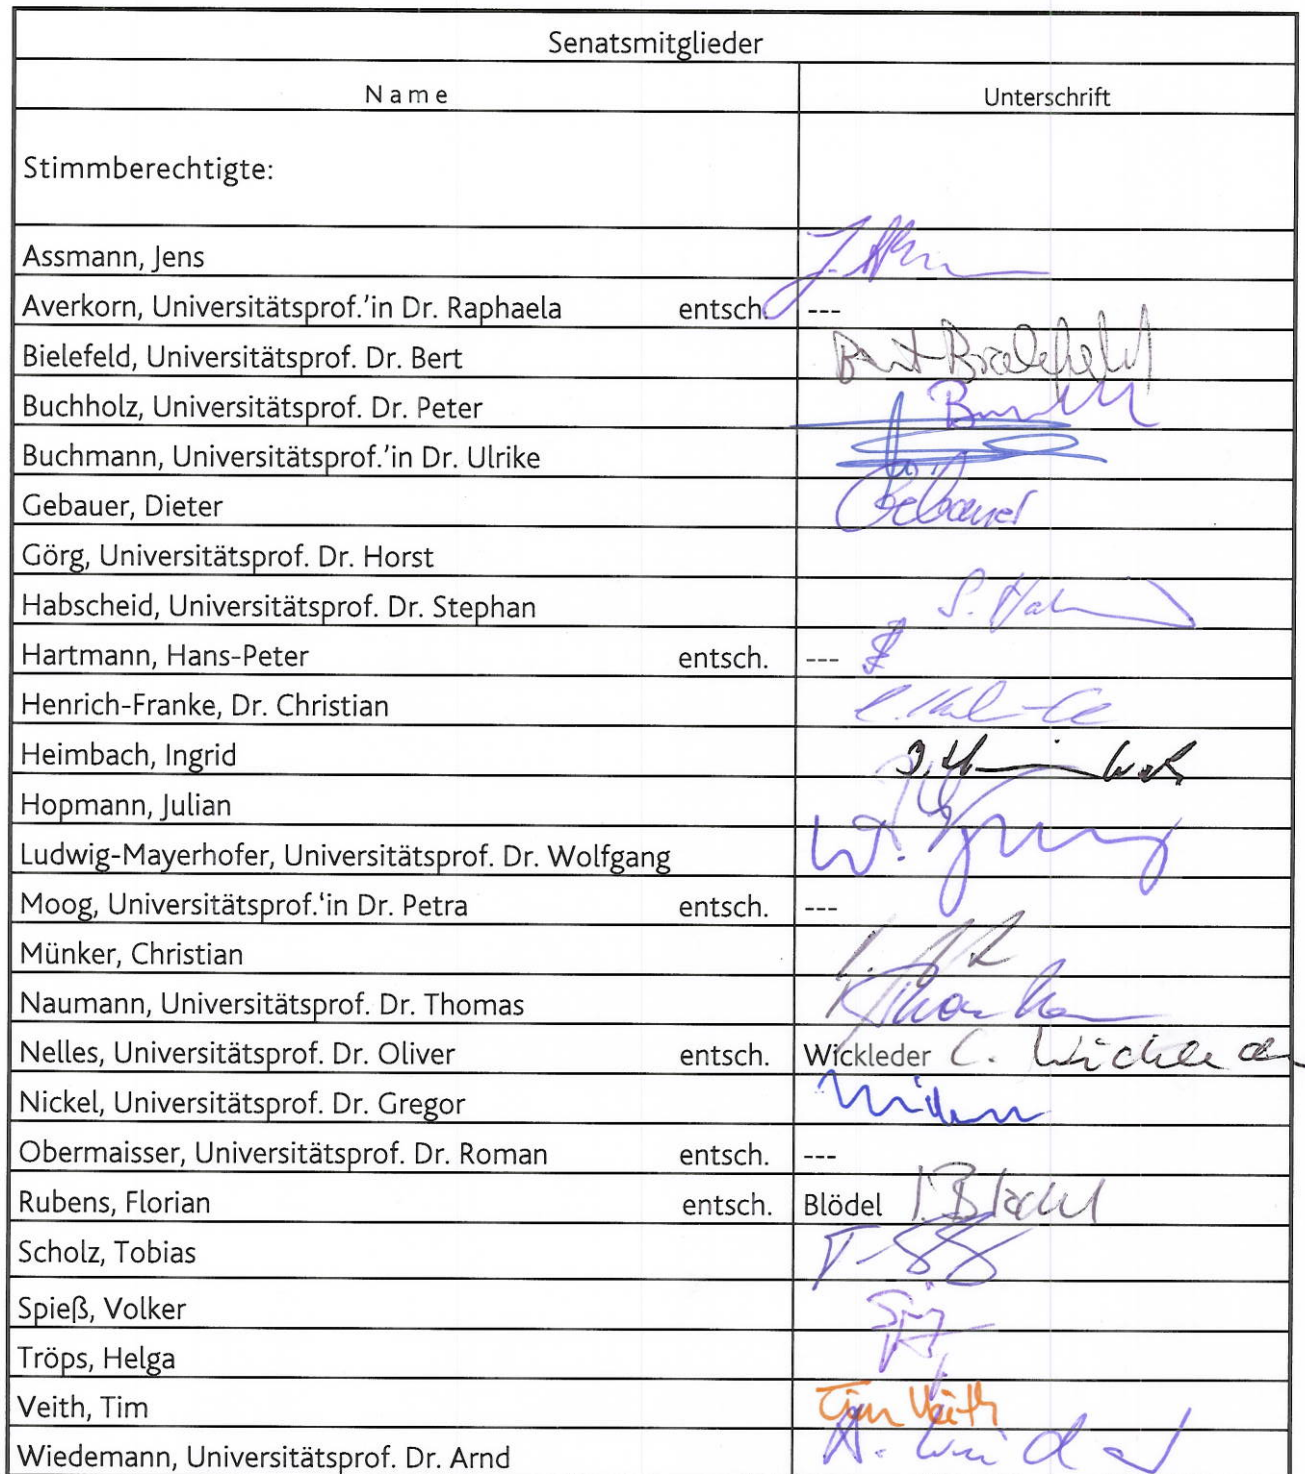 Senatsmitglieder
Name Unterschrift
Stimmberechtigte:
Assmann, Jens
Averkorn, Universitätsprof.'in Dr. Raphaela entsch. ---
Bielefeld, Universitätsprof. Dr. Bert Bert Bielefeld
Buchholz, Universitätsprof. Dr. Peter
Buchmann, Universitätsprof.'in Dr. Ulrike
Gebauer, Dieter Gebauer
Görg, Universitätsprof. Dr. Horst
Habscheid, Universitätsprof. Dr. Stephan
Hartmann, Hans-Peter entsch. ---
Henrich-Franke, Dr. Christian
Heimbach, Ingrid
Hopmann, Julian
Ludwig-Mayerhofer, Universitätsprof. Dr. Wolfgang
Moog, Universitätsprof.'in Dr. Petra entsch. ---
Münker, Christian
Naumann, Universitätsprof. Dr. Thomas
Nelles, Universitätsprof. Dr. Oliver entsch. Wickleder C. Wickleder
Nickel, Universitätsprof. Dr. Gregor
Obermaisser, Universitätsprof. Dr. Roman entsch. ---
Rubens, Florian entsch. Blödel
Scholz, Tobias
Spieß, Volker
Tröps, Helga
Veith, Tim Tim Veith
Wiedemann, Universitätsprof. Dr. Arnd